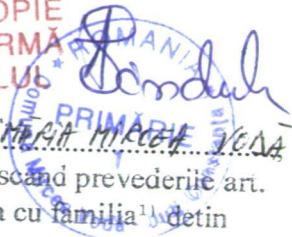 OPIE
RMĂ
LUL
ROMANIA
PRIMĂRIE
MĂRIA MIRCEA VODĂ
scând prevederile art.
a cu familia¹⁾ detin